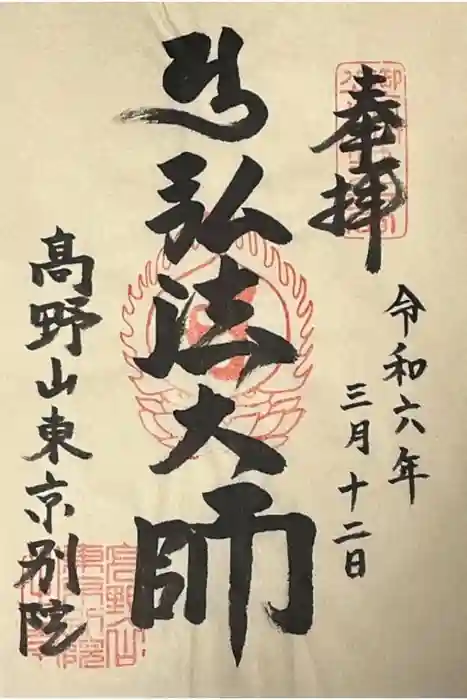 奉拝
令和六年
三月十二日
弘法大師
高野山東京別院